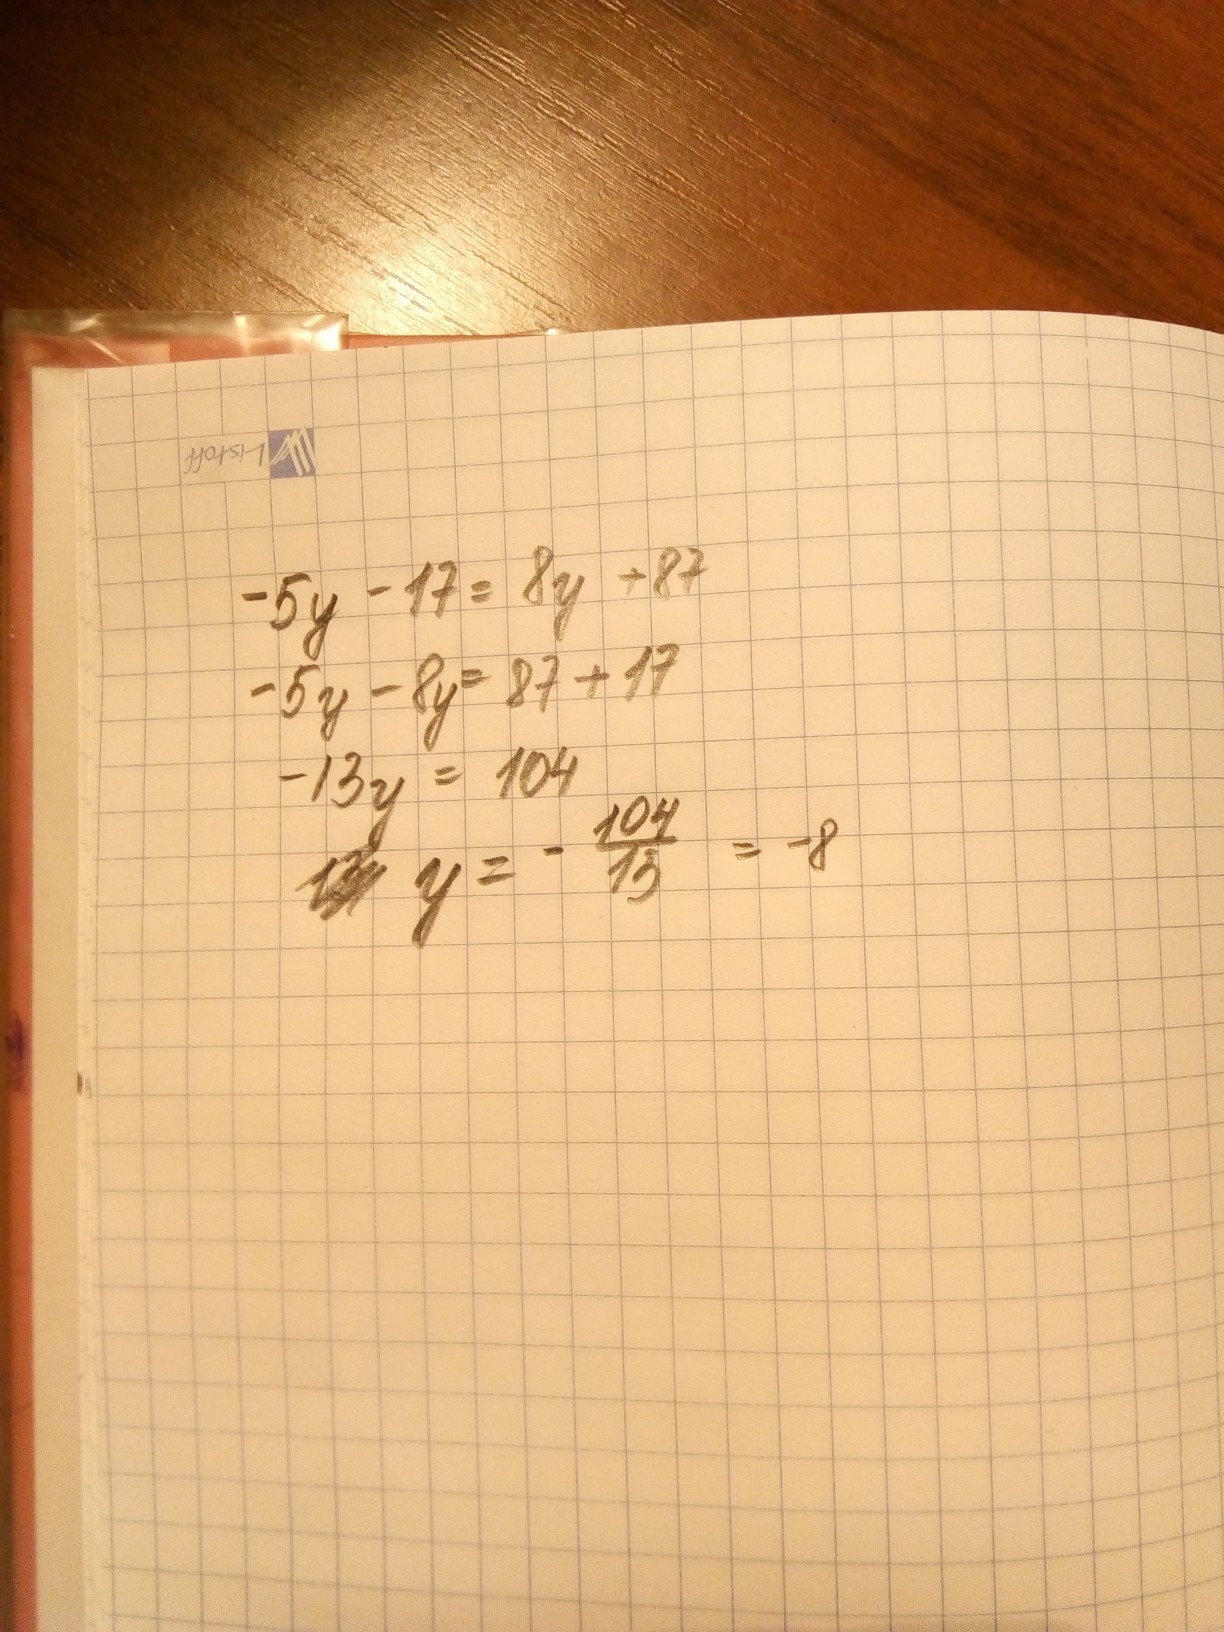 Listoff
-5y - 17 = 8y + 87
-5y - 8y = 87 + 17
-13y = 104
y = - 104/13 = -8